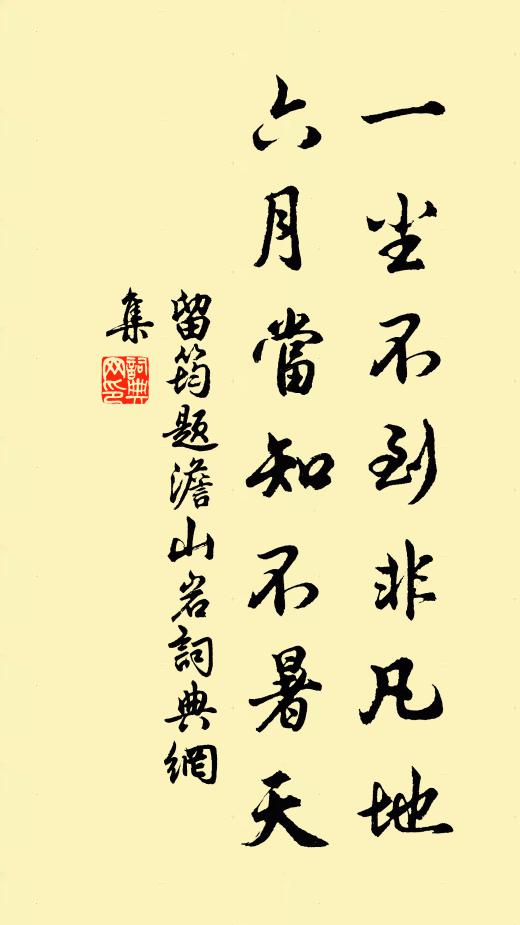 一尘不到非凡地
六月當知不暑天
留筠題澹山岩詞典網
集
詞典网印